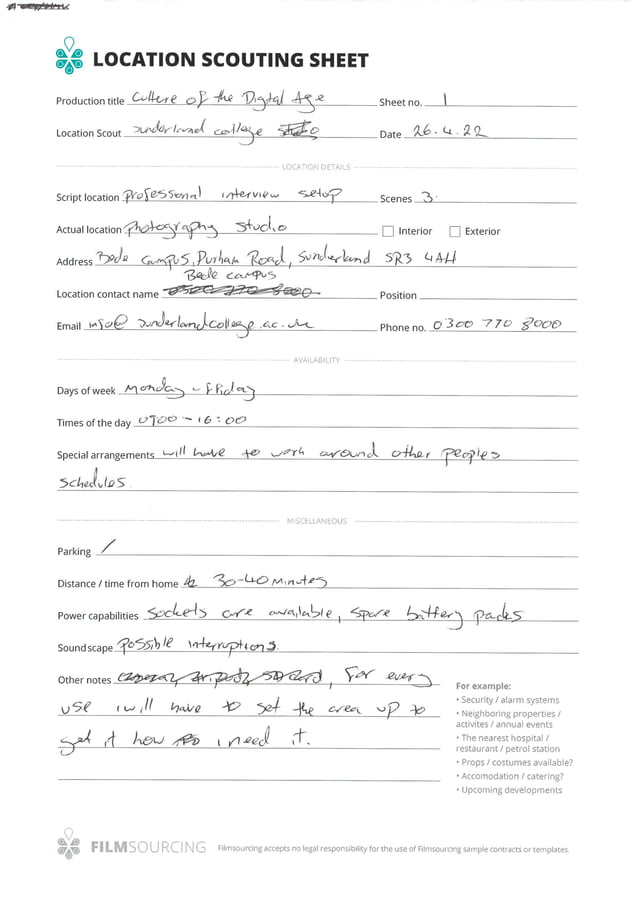 LOCATION SCOUTING SHEET
Production title Culture of the Digital Age Sheet no. 1
Location Scout Sunderland college Date 26.4.22
LOCATION DETAILS
Script location professional interview setup Scenes 3
Actual location Photography Studio Interior Exterior
Address Bede Campus, Durham Road, Sunderland SR3 4AH
Bede campus
Location contact name Position
Email info@sunderlandcollege.ac.uk Phone no. 0300 770 8000
AVAILABILITY
Days of week Monday - Friday
Times of the day 0900 - 16:00
Special arrangements will have to work around other peoples
schedules
MISCELLANEOUS
Parking /
Distance / time from home 30-40 Minutes
Power capabilities Sockets are available, spare battery packs
Soundscape Possible interruptions
Other notes , For every
use i will have to set the area up to
get it how i need it.
For example:
• Security / alarm systems
• Neighboring properties /
activites / annual events
• The nearest hospital /
restaurant / petrol station
• Props / costumes available?
• Accomodation / catering?
• Upcoming developments
FILMSOURCING Filmsourcing accepts no legal responsibility for the use of Filmsourcing sample contracts or templates.